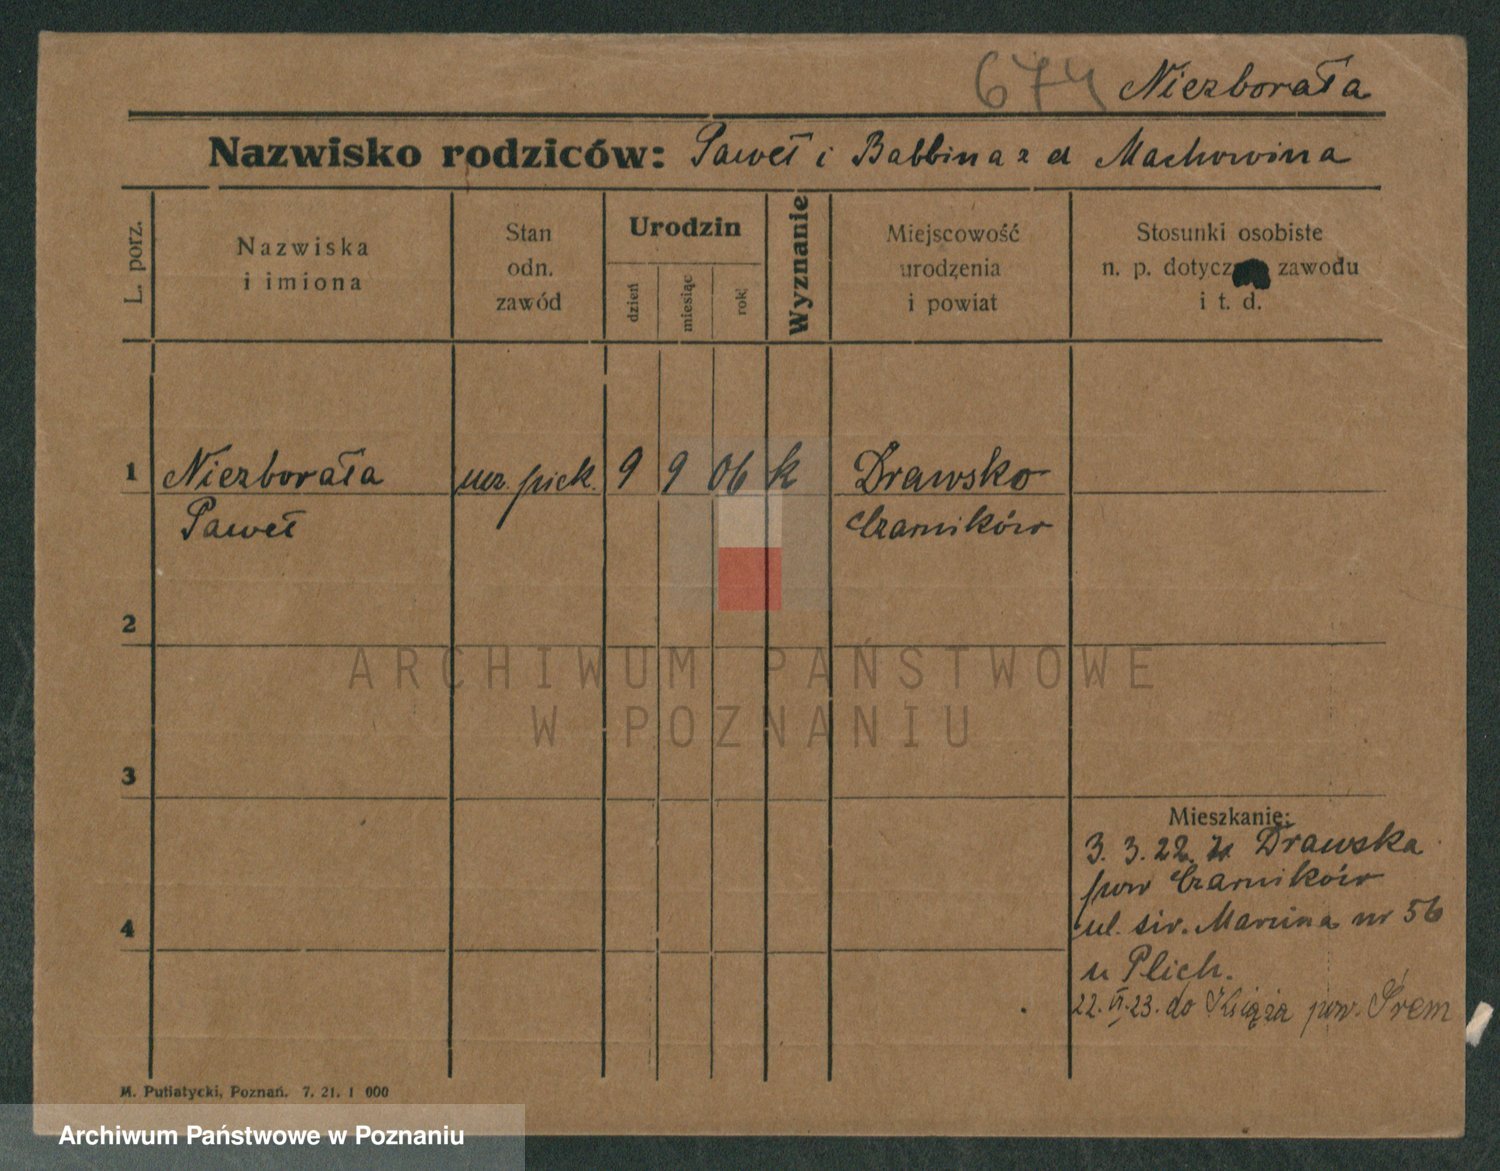 674 Niezborała
Nazwisko rodziców: Paweł i Balbina z d Machowina
L. porz.
Nazwiska
i imiona
Stan
odn.
zawód
Urodzin
dzień
miesiąc
rok
Wyznanie
Miejscowość
urodzenia
i powiat
Stosunki osobiste
n. p. dotycz zawodu
i t. d.
1 Niezborała ucz. piek. 9 9 06 k Drawsko
Paweł Czarników
2
ARCHIWUM PAŃSTWOWE
W POZNANIU
3
Mieszkanie:
3. 3. 22 z Drawska
pow Czarników
4
ul. św. Marcina nr 56
u Plich.
22. VI. 23. do Książa pow. Śrem
M. Putiatycki, Poznań. 7. 21. 1 000
Archiwum Państwowe w Poznaniu